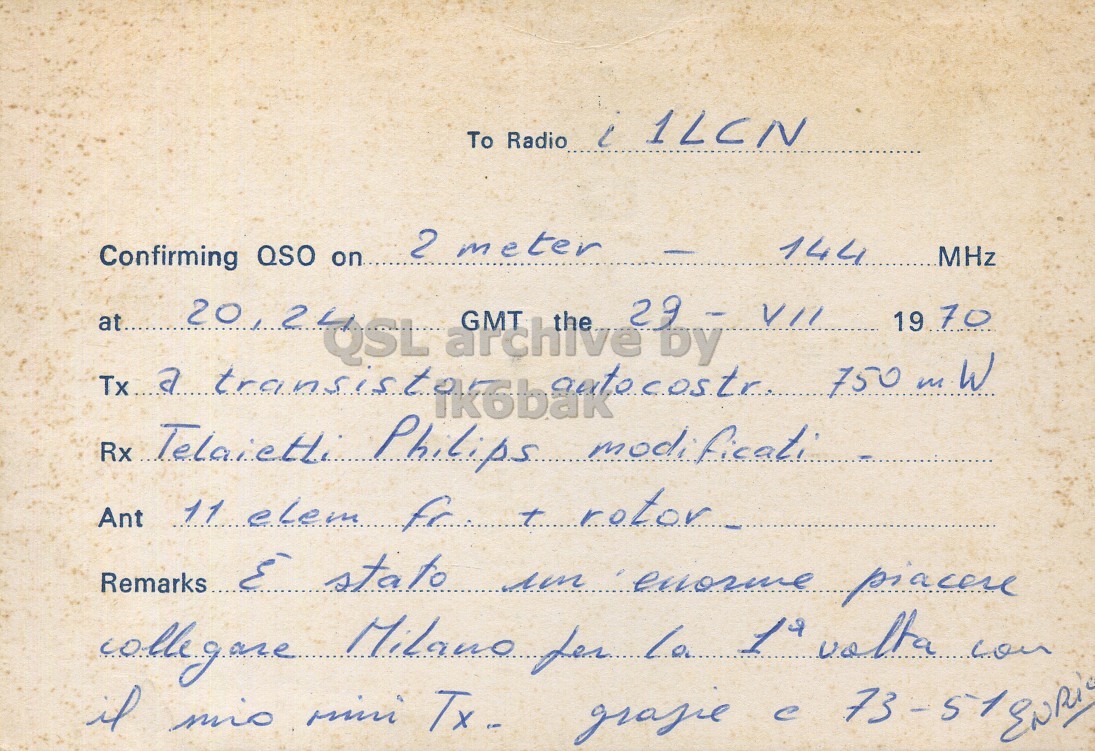 To Radio i 1LCN
Confirming QSO on 2 meter - 144 MHz
at 20,24 GMT the 29 - VII 1970
QSL archive by
Tx a transistor autocostr. 750 mW
ik6bak
Rx Telaietti Philips modificati -
Ant 11 elem fr. + rotor -
Remarks È stato un enorme piacere
collegare Milano per la 1ª volta con
il mio mini Tx - grazie e 73-51 ENRico